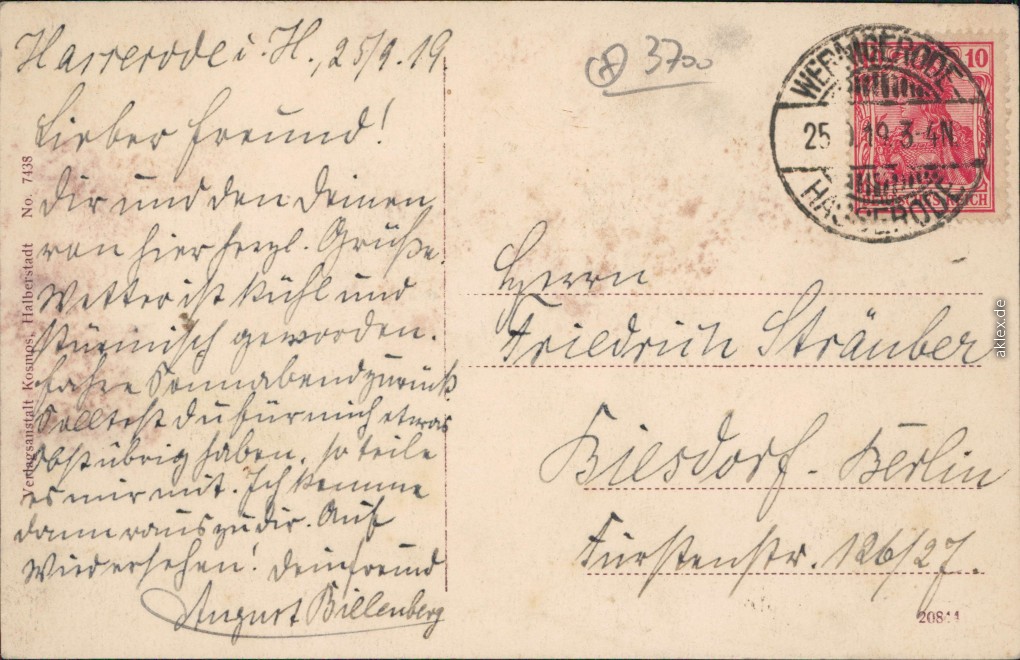 Hasserode i. H., 25/9. 19
Lieber Freund!
Dir und den Deinen
von hier herzl. Grüße.
Wetter ist kühl und
stürmisch geworden.
Fahre Sonnabend zurück.
Solltest Du für mich etwas
Obst übrig haben, so teile
es mir mit. Ich komme
dann raus zu dir. Auf
Wiedersehen! Dein Freund
August Billenberg
Verlagsanstalt Kosmos, Halberstadt No. 7438
3700
WERNIGERODE
25. 9. 19. 3-4N
HASSERODE
10
Herrn
Friedrich Sträuber
Biesdorf - Berlin
Fürstenstr. 126/27.
20844
aklex.de